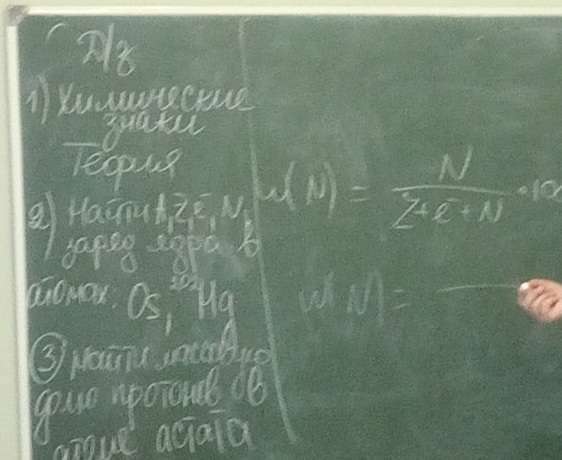 Д/з
1) Химические
знаки
Теория
2) Найти A, Z, ē, N,
заряд ядра в
атомах: Os, Hg
③ найти массовую
долю протонов в
атоме астата
w(N) = N / Z+ē+N · 10
w(N) =